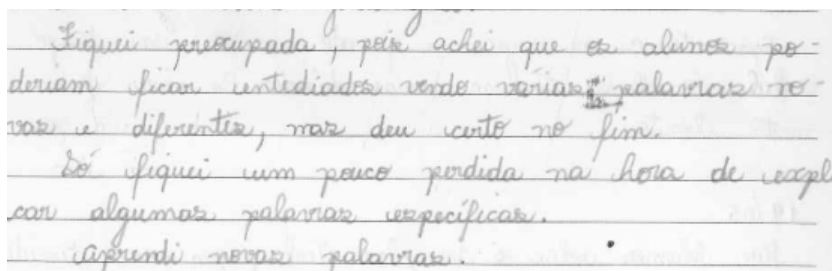 Fiquei preocupada, pois achei que os alunos po-
deriam ficar entediados vendo várias palavras no-
vas e diferentes, mas deu certo no fim.
Só fiquei um pouco perdida na hora de expl
car algumas palavras específicas.
Aprendi novas palavras.